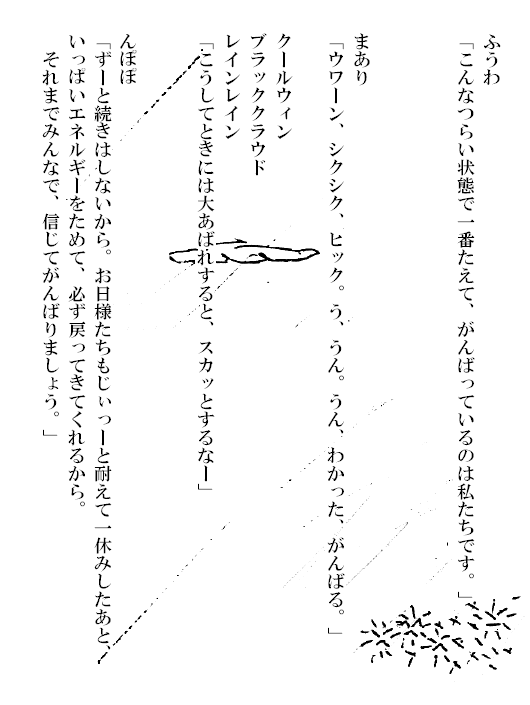 ふうわ
「こんなつらい状態で一番たえて、がんばっているのは私たちです。」
まあり
「ウワーン、シクシク、ヒック。う、うん。うん、わかった、がんばる。」
クールウィン
ブラッククラウド
レインレイン
「こうしてときには大あばれすると、スカッとするなー」
んぽぽ
「ずーと続きはしないから。お日様たちもじぃっーと耐えて一休みしたあと、
いっぱいエネルギーをためて、必ず戻ってきてくれるから。
それまでみんなで、信じてがんばりましょう。」